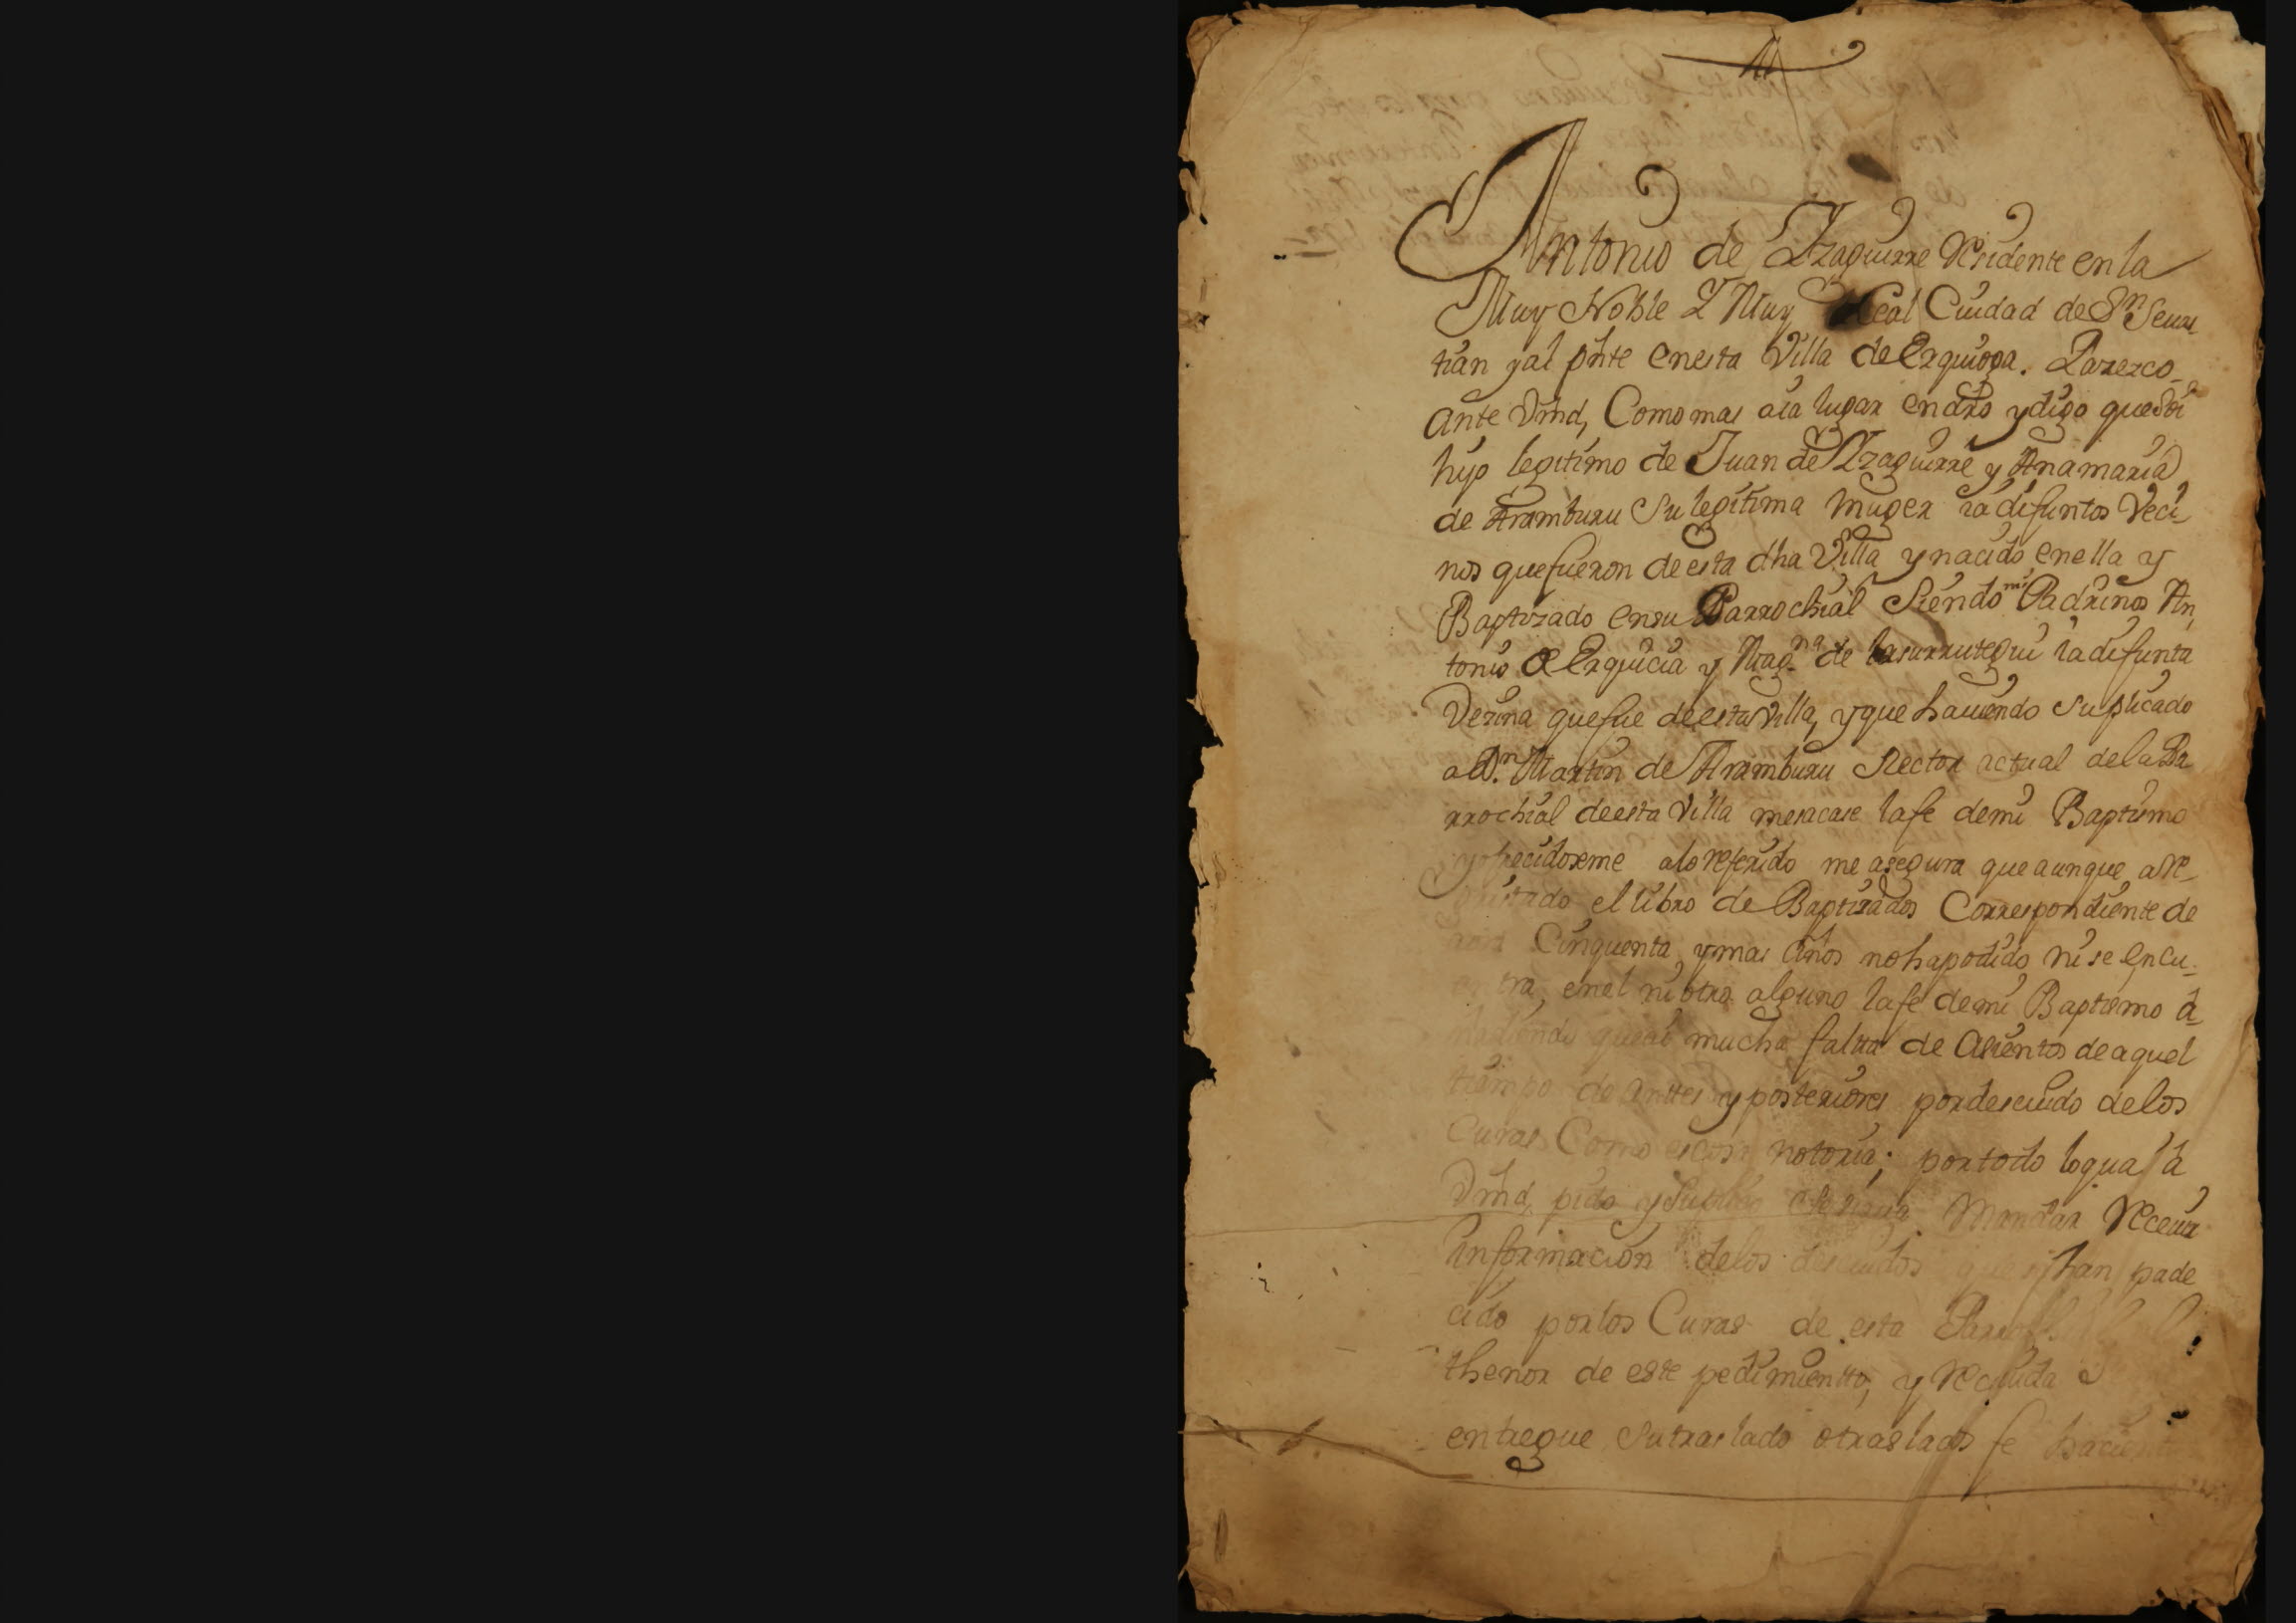 Antonio de Yzaguirre Residente en la
Muy Noble Y Muy Leal Ciudad de Sn Sevas-
tian y al pnte en esta Villa de Erquioga. Parezco
ante Vmd, Como mas aia lugar en dro y digo que soi
hijo legitimo de Juan de Yzaguirre y Anamaria
de Aramburu Su legitima muger ia difuntos Veci-
nos que fueron de esta dha Villa y nacido en ella y
Baptizado en su Parrochial Siendo mis Padrinos An-
tonio de Erquicia y Magna de Lasurrutegui ia difunta
Vezina que fue de esta Villa, y que haviendo suplicado
a Dn. Martin de Aramburu Rector actual de la Pa
rrochial de esta Villa me sacase la fe de mi Baptismo
y ofrecidoseme a lo referido me asegura que aunque a Re-
gistrado el libro de Baptizados Correspondiente de
Cinquenta y mas años no ha podido ni se encu-
entra, en el ni otro alguno la fe de mi Baptismo a-
ñadiendo que ai mucha falta de Asientos de aquel
tiempo de anttes y posteriores por descuido de los
Curas Como es cosa notoria; por todo lo qual a
Vmd, pido y Suplico se sirva Mandar Recevir
informacion de los descuidos que se han pade
cido por los Curas de esta
thenor de este pedimientto, y Recivida
entregue su traslado o traslados fe